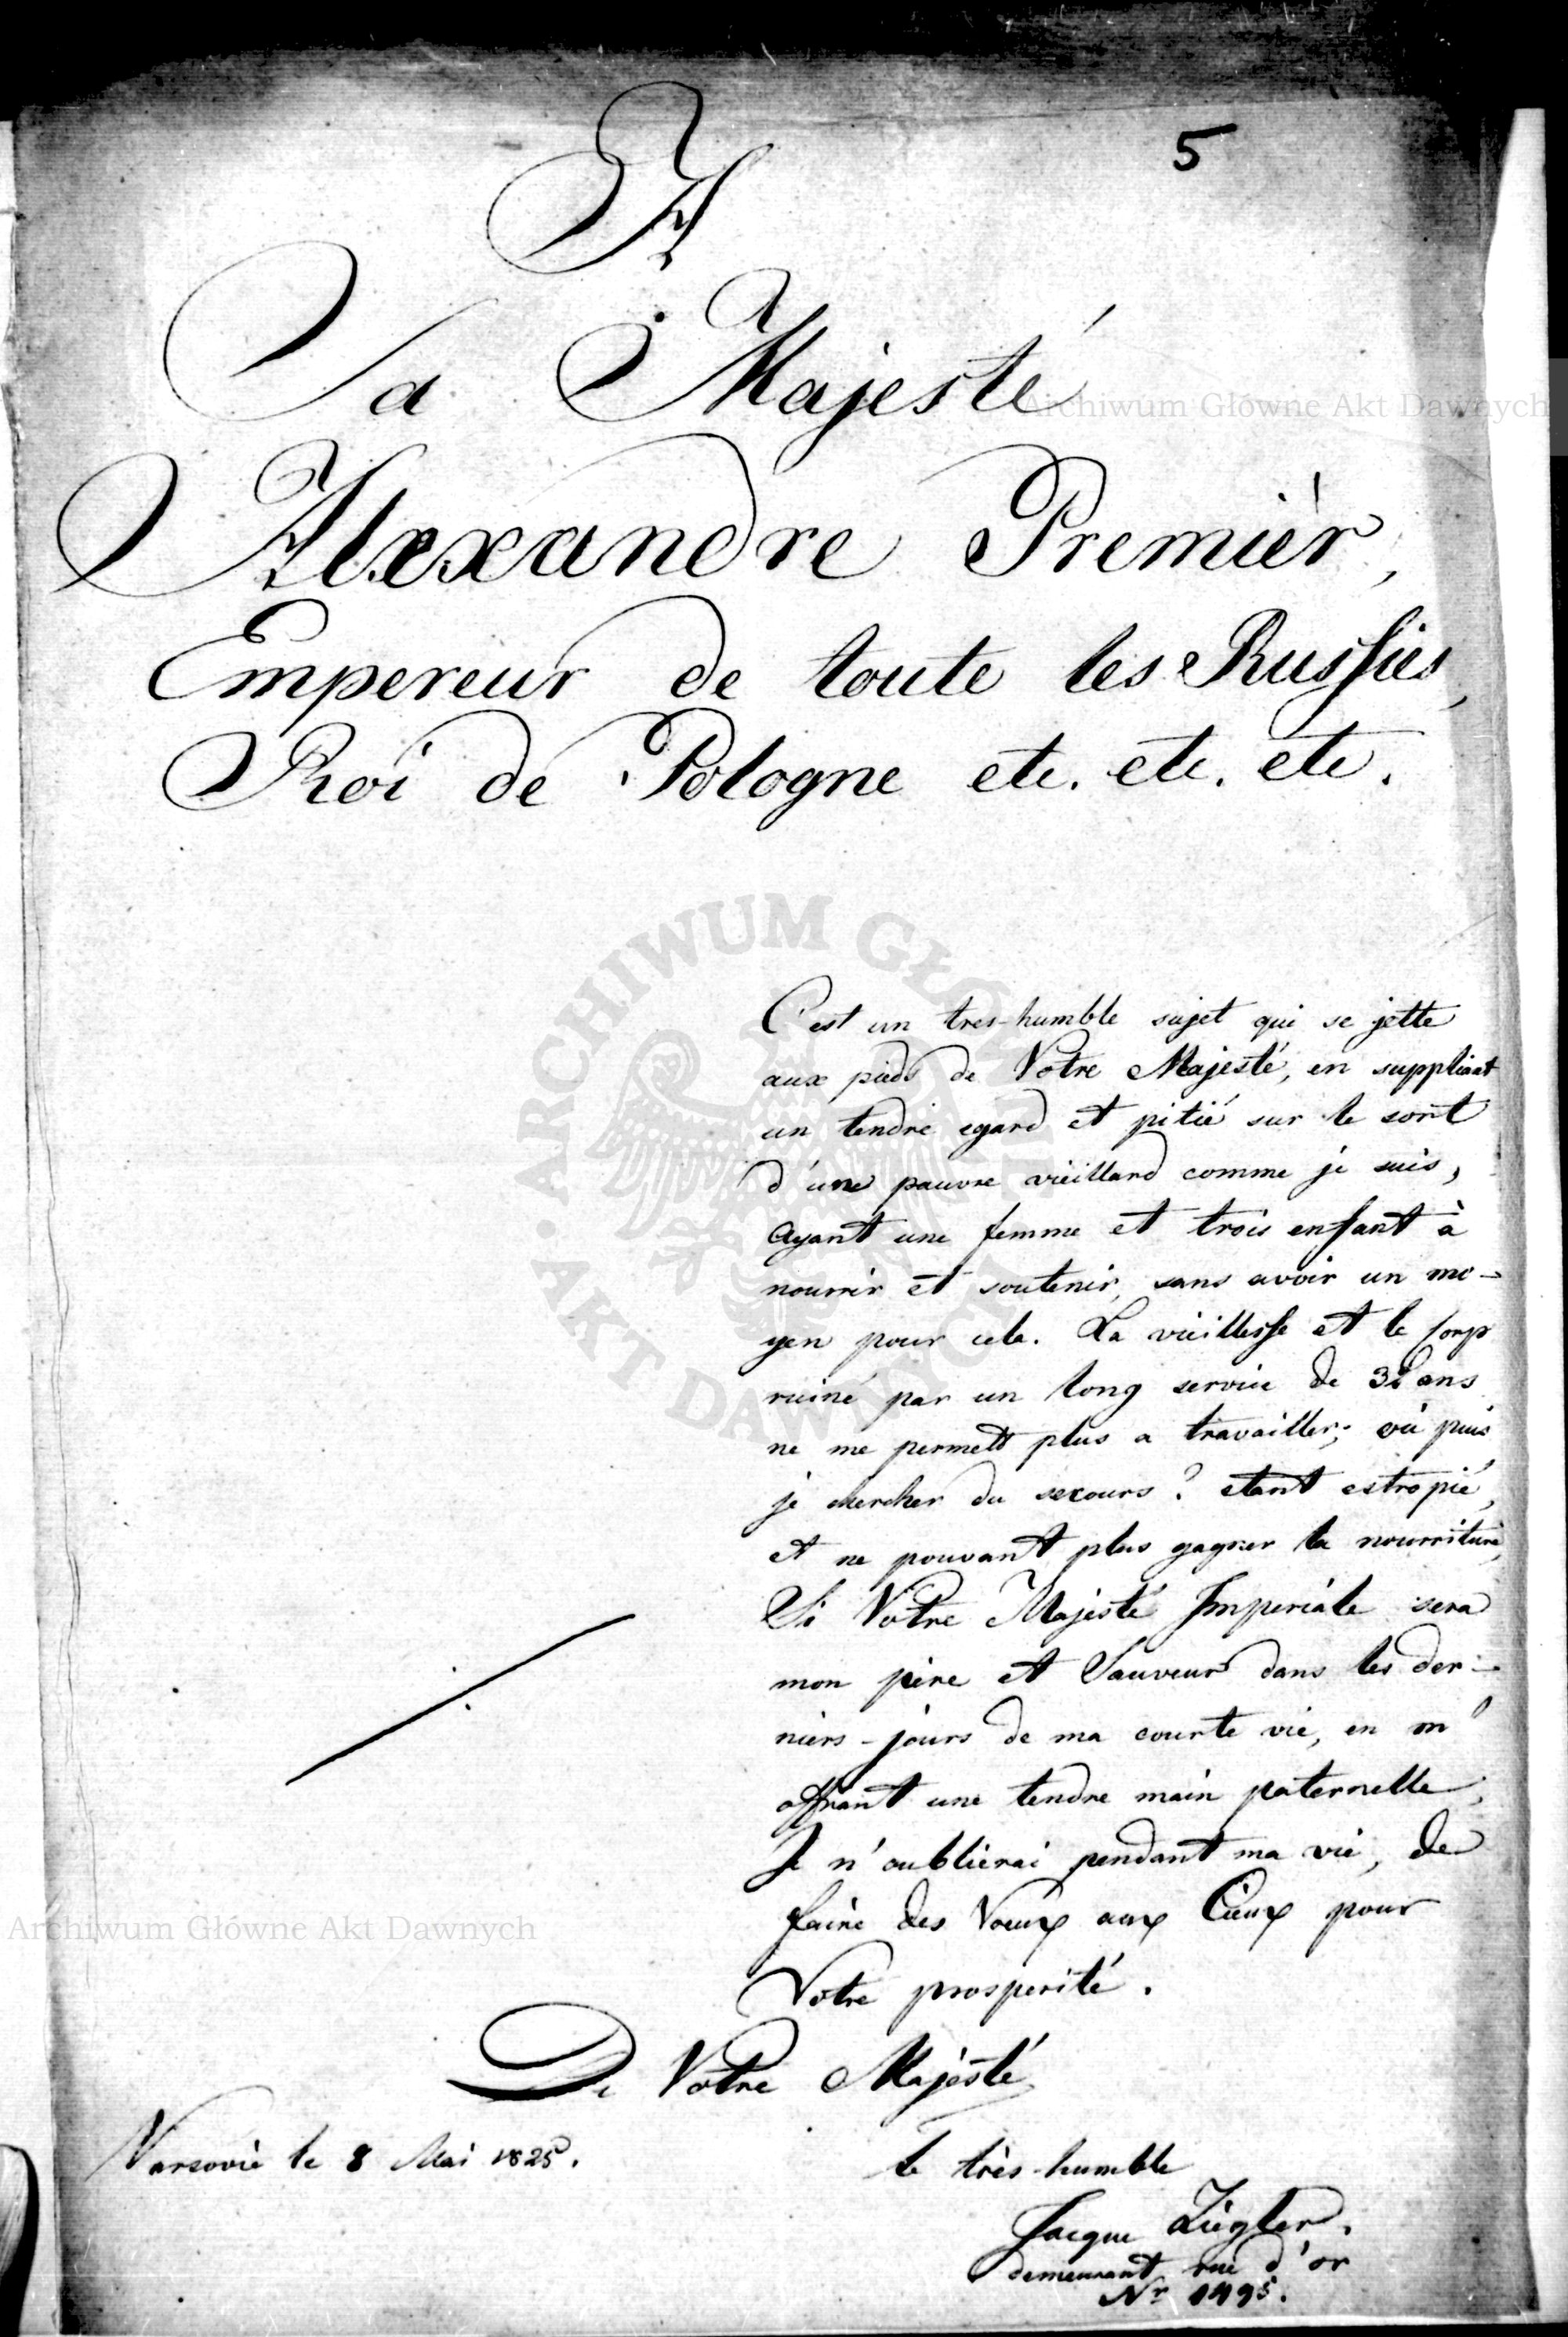 5
A
Sa Majesté
Alexandre Premièr,
Empereur de toute les Russies,
Roi de Pologne etc. etc. etc.
C'est un tres-humble sujet qui se jette
aux pieds de Votre Majesté, en suppliant
un tendre egard et pitié sur le sort
d'une pauvre vieillard comme je suis,
ayant une femme et trois enfant à
nourrir et soutenir, sans avoir un mo-
yen pour cela. La vieillesse et le corp
ruiné par un long service de ans
ne me permett plus a travailler; où puis
je chercher du secours? etant estropié,
et ne pouvant plus gagner la nourriture,
Si Votre Majesté Imperiale sera
mon père et Sauveur dans les der-
niers-jours de ma courte vie, en m'
offrant une tendre main paternelle,
Je n'oublierai pendant ma vie, de
faire des Voeux aux Cieux pour
Votre prosperité.
De Votre Majesté
Varsovie le 8 Mai 1825.
le très-humble
Jacque Ziegler,
demeurant rue d'or
Nr 1495.
Archiwum Główne Akt Dawnych
ARCHIWUM GŁÓWNE AKT DAWNYCH
Archiwum Główne Akt Dawnych